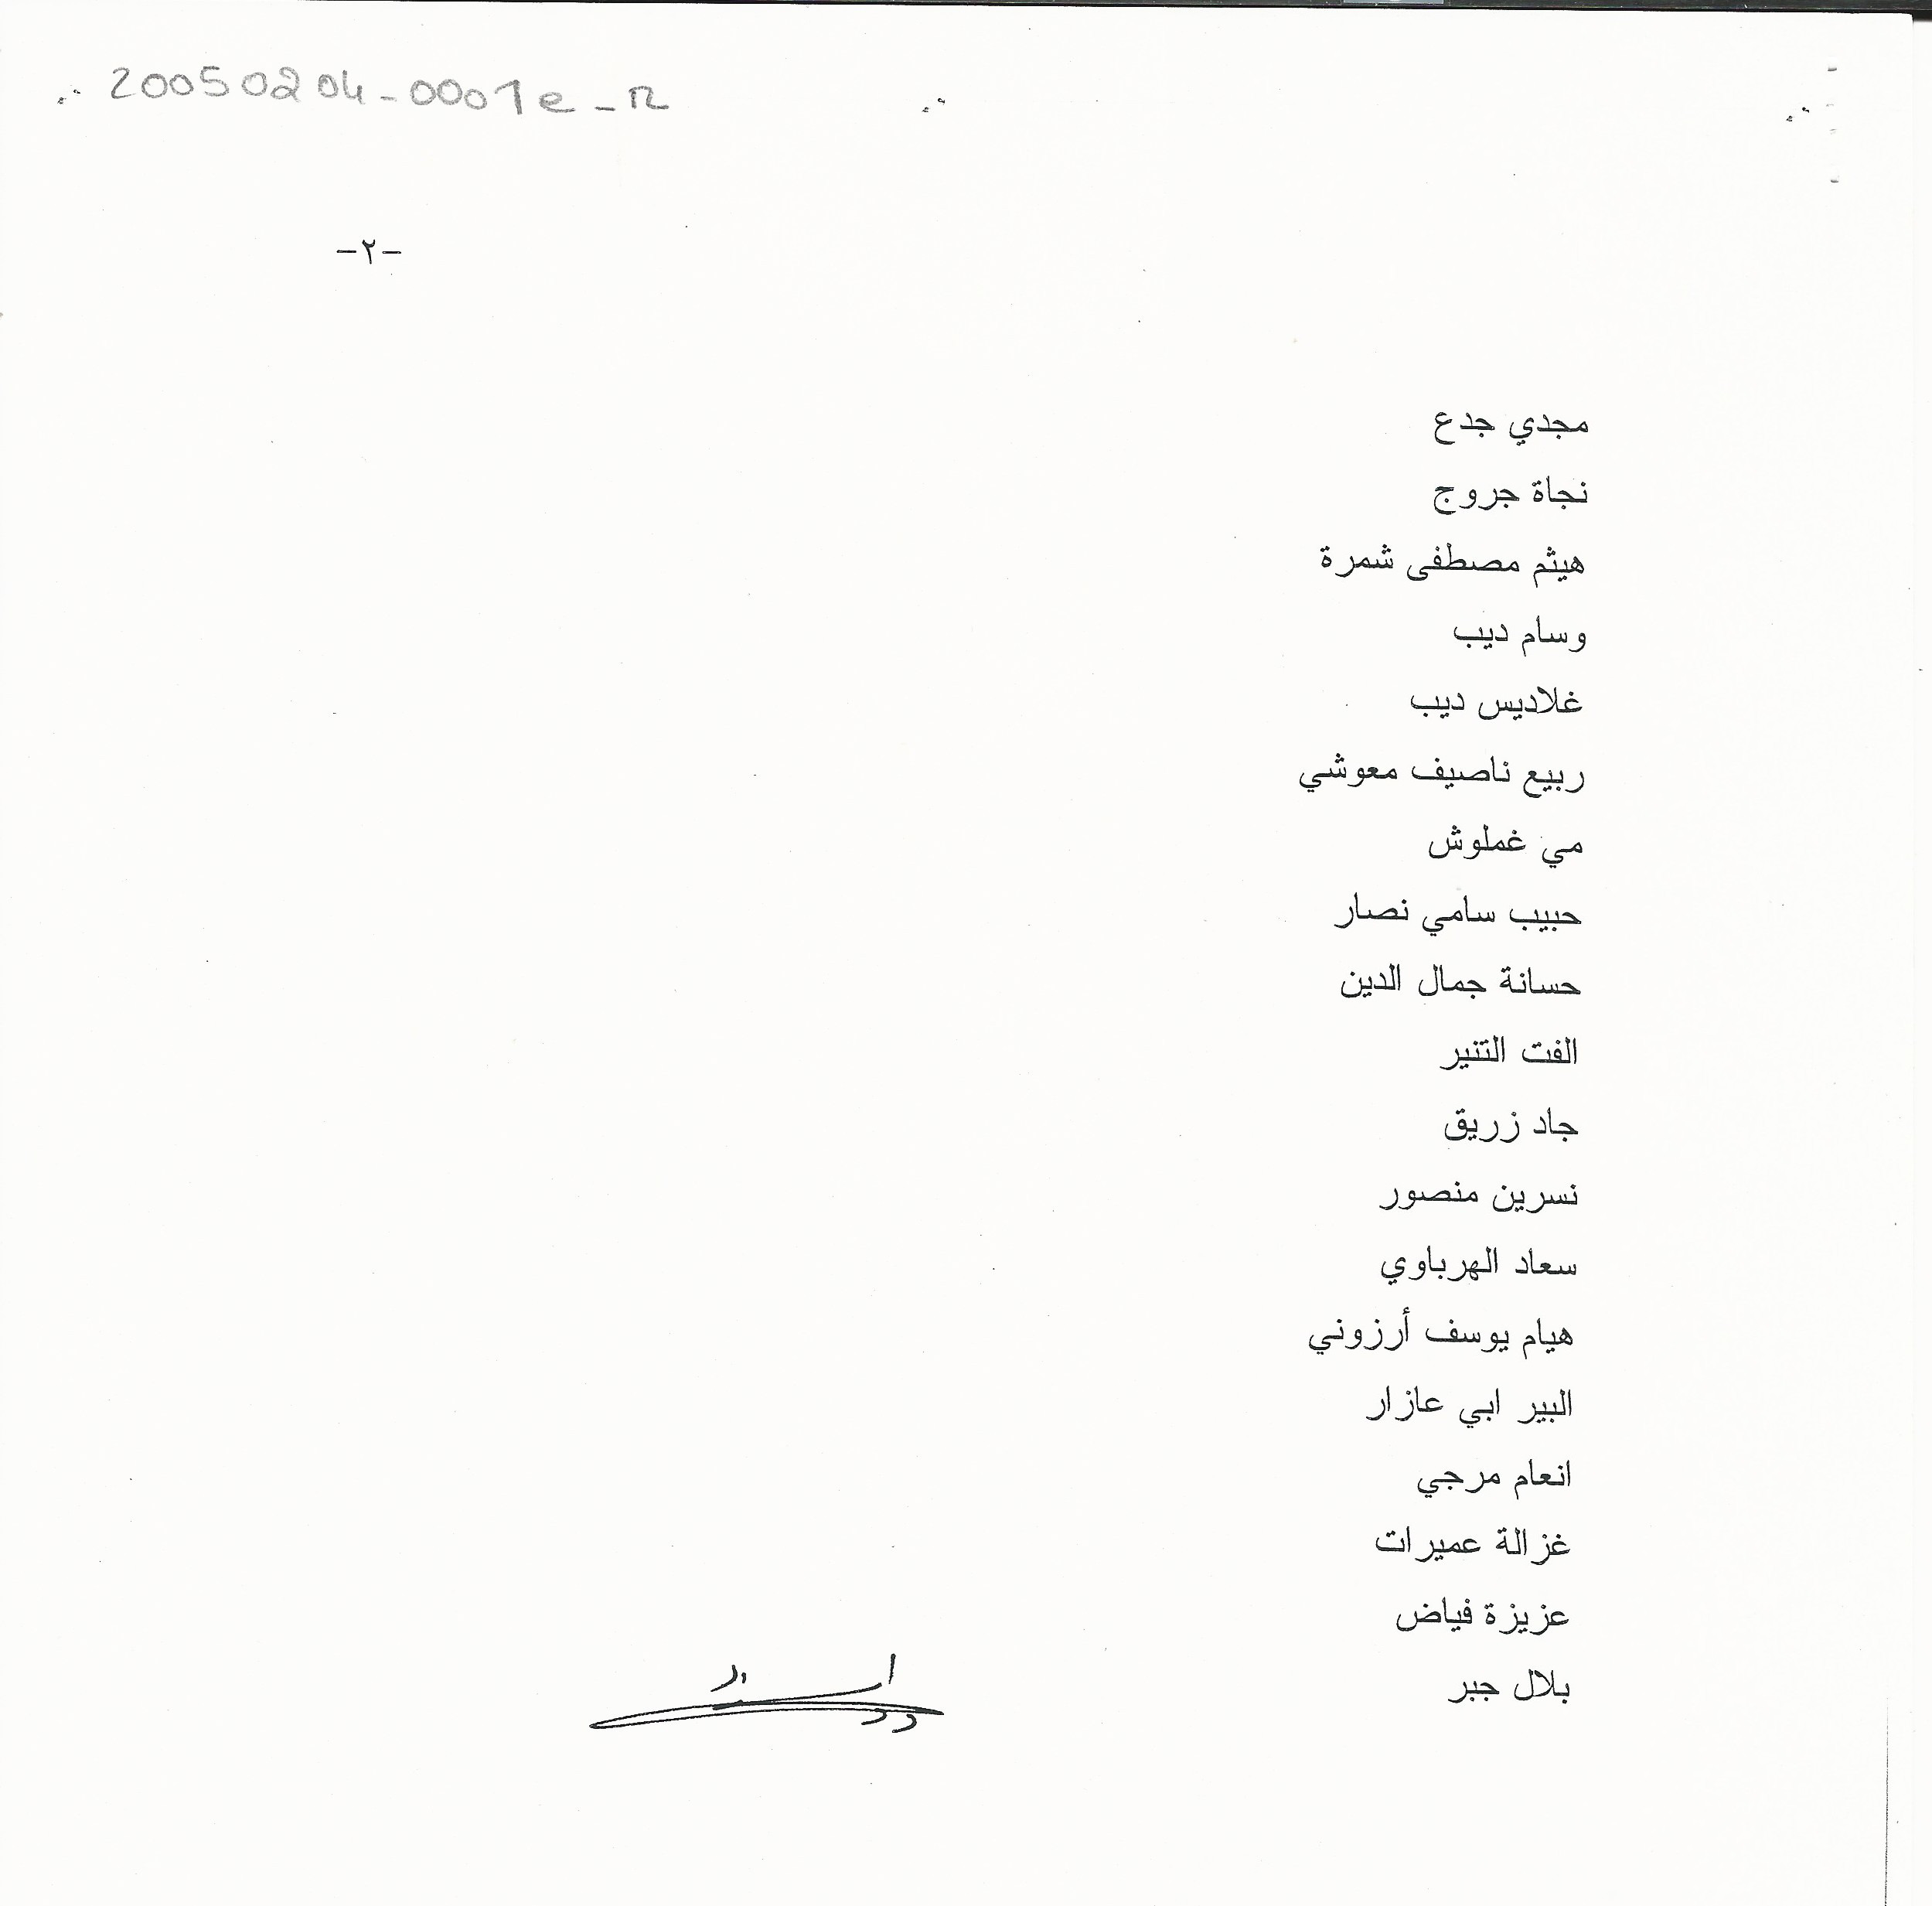 20050204-0001e-r
-٢-
مجدي جدع
نجاة جروج
هيثم مصطفى شمرة
وسام ديب
غلاديس ديب
ربيع ناصيف معوشي
مي غملوش
حبيب سامي نصار
حسانة جمال الدين
الفت التنير
جاد زريق
نسرين منصور
سعاد الهرباوي
هيام يوسف أرزوني
البير ابي عازار
انعام مرجي
غزالة عميرات
عزيزة فياض
بلال جبر